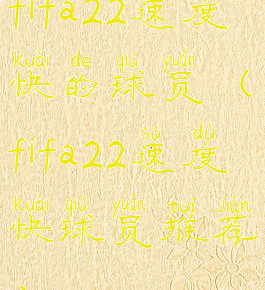 fifa22速度
kuài de qiú yuán
快的球员（
sù dù
fifa22速度
kuài qiú yuán tuī jiàn
快球员推荐
）